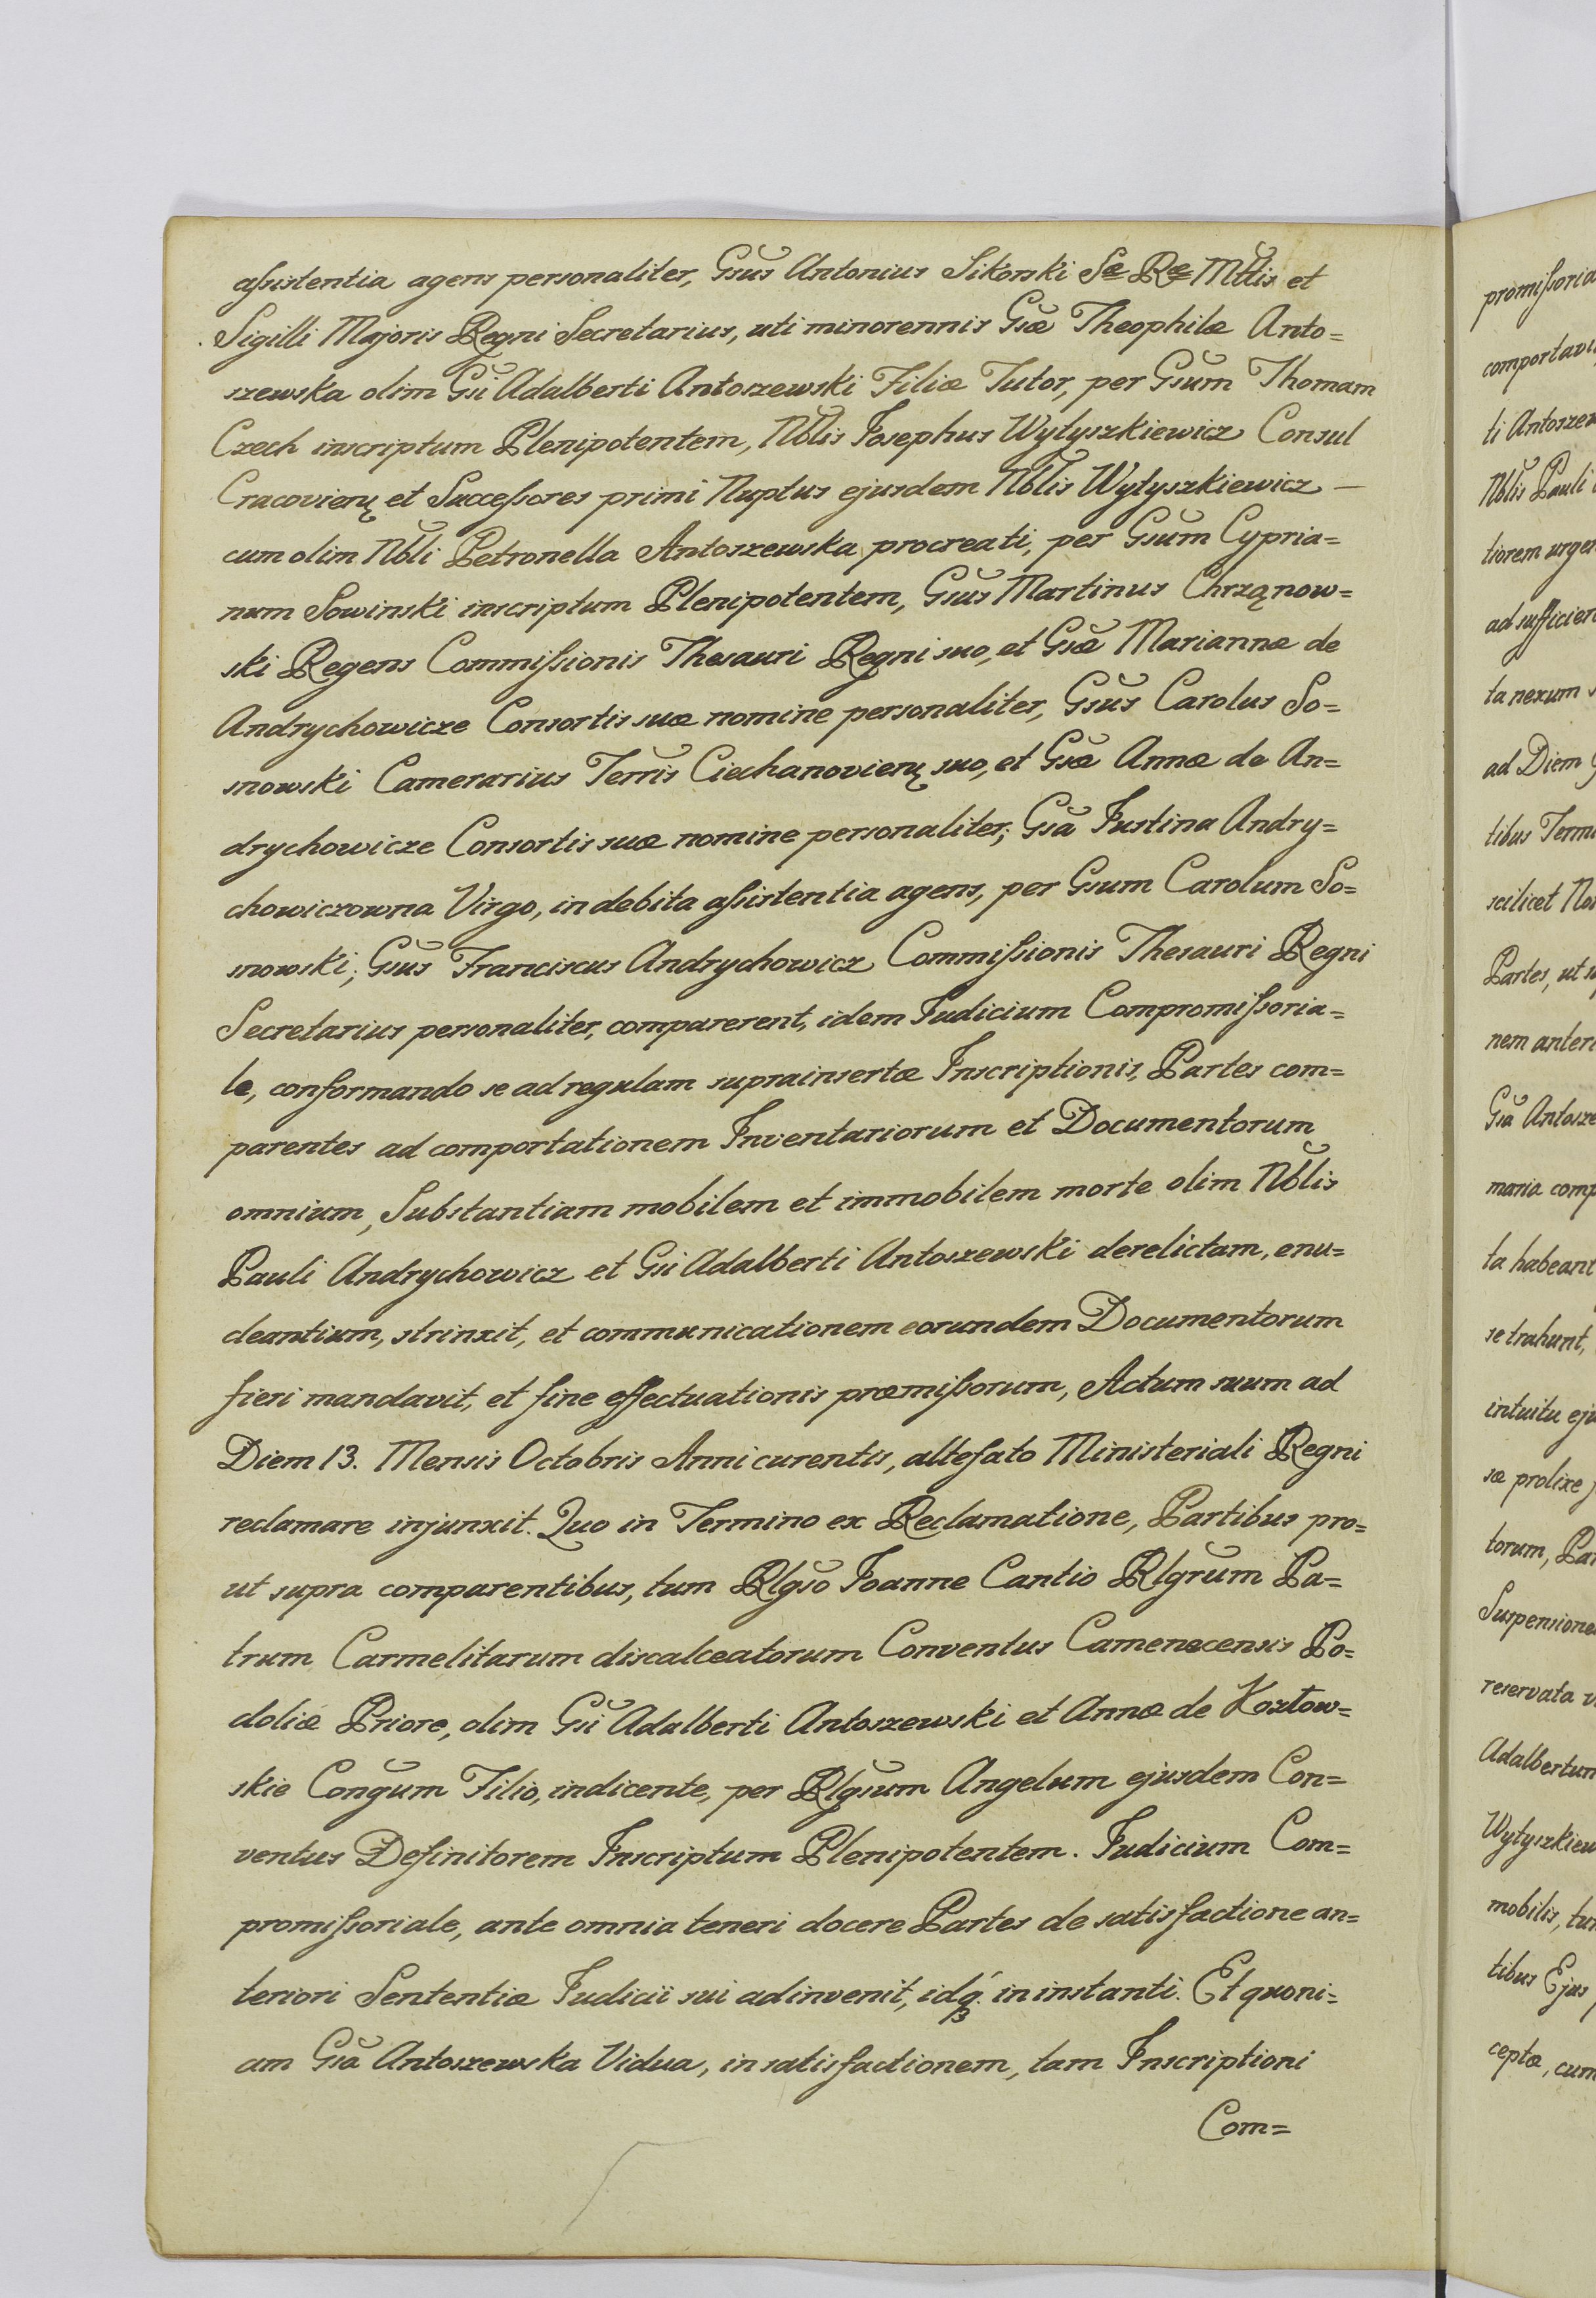 aſsistentia agens personaliter, Gsus Antonius Sikorski Sæ Ræ Mttis et
Sigilli Majoris Regni Secretarius, uti minorennis Gsæ Theophilæ Anto=
szewska olim Gsi Adalberti Antoszewski Filiæ Tutor, per Gsum Thomam
Czech inscriptum Plenipotentem, Nblis Josephus Wytyszkiewicz Consul
Cracovien et Succeſsores primi Nuptus ejusdem Nblis Wytyszkiewicz —
cum olim Nbli Petronella Antoszewska procreati, per Gsum Cypria=
num Sowinski inscriptum Plenipotentem, Gsus Martinus Chrząnow=
ski Regens Commiſsionis Thesauri Regni suo, et Gsæ Mariannæ de
Andrychowicze Consortis suæ nomine personaliter, Gsus Carolus So=
snowski Camerarius Terris Ciechanovien suo, et Gsæ Annæ de An=
drychowicze Consortis suæ nomine personaliter; Gsa Justina Andry=
chowiczowna Virgo, in debita aſsistentia agens, per Gsum Carolum So=
snowski; Gsus Franciscus Andrychowicz Commiſsionis Thesauri Regni
Secretarius personaliter, comparerent, idem Judicium Compromiſsoria=
le, conformando se ad regulam suprainsertæ Inscriptionis, Partes com=
parentes ad comportationem Inventariorum et Documentorum
omnium, Substantiam mobilem et immobilem morte olim Nblis
Pauli Andrychowicz et Gsi Adalberti Antoszewski derelictam, enu=
cleantium, strinxit, et communicationem eorundem Documentorum
fieri mandavit, et fine effectuationis præmiſsorum, Actum suum ad
Diem 13. Mensis Octobris Anni curentis, altefato Ministeriali Regni
reclamare injunxit. Quo in Termino ex Reclamatione, Partibus pro=
ut supra comparentibus, tum Rlgso Joanne Cantio Rlgrum Pa=
trum Carmelitarum discalceatorum Conventus Camenecensis Po=
doliæ Priore, olim Gsi Adalberti Antoszewski et Annæ de Kozłow=
skie Congum Filio, indicente, per Rlgsum Angelum ejusdem Con=
ventus Definitorem Inscriptum Plenipotentem. Judicium Com=
promiſsoriale, ante omnia teneri docere Partes de satisfactione an=
teriori Sententiæ Judicii sui adinvenit, idq. in instanti. Et quoni=
am Gsa Antoszewska Vidua, in satisfactionem, tam Inscriptioni
Com=
promiſsoria
comportavi
ti Antoszew
Nblis Pauli
tiorem urgen
ad sufficien
ta nexum
ad Diem
tibus Termi
scilicet No
Partes, ut su
nem anteri
Gsa Antosze
maria comp
ta habeant
se trahunt,
intuitu eju
sæ prolixe
torum, Par
Suspensione
reservata
Adalbertum
Wytyszkiew
mobilis, tum
tibus Ejus
ceptæ, cum